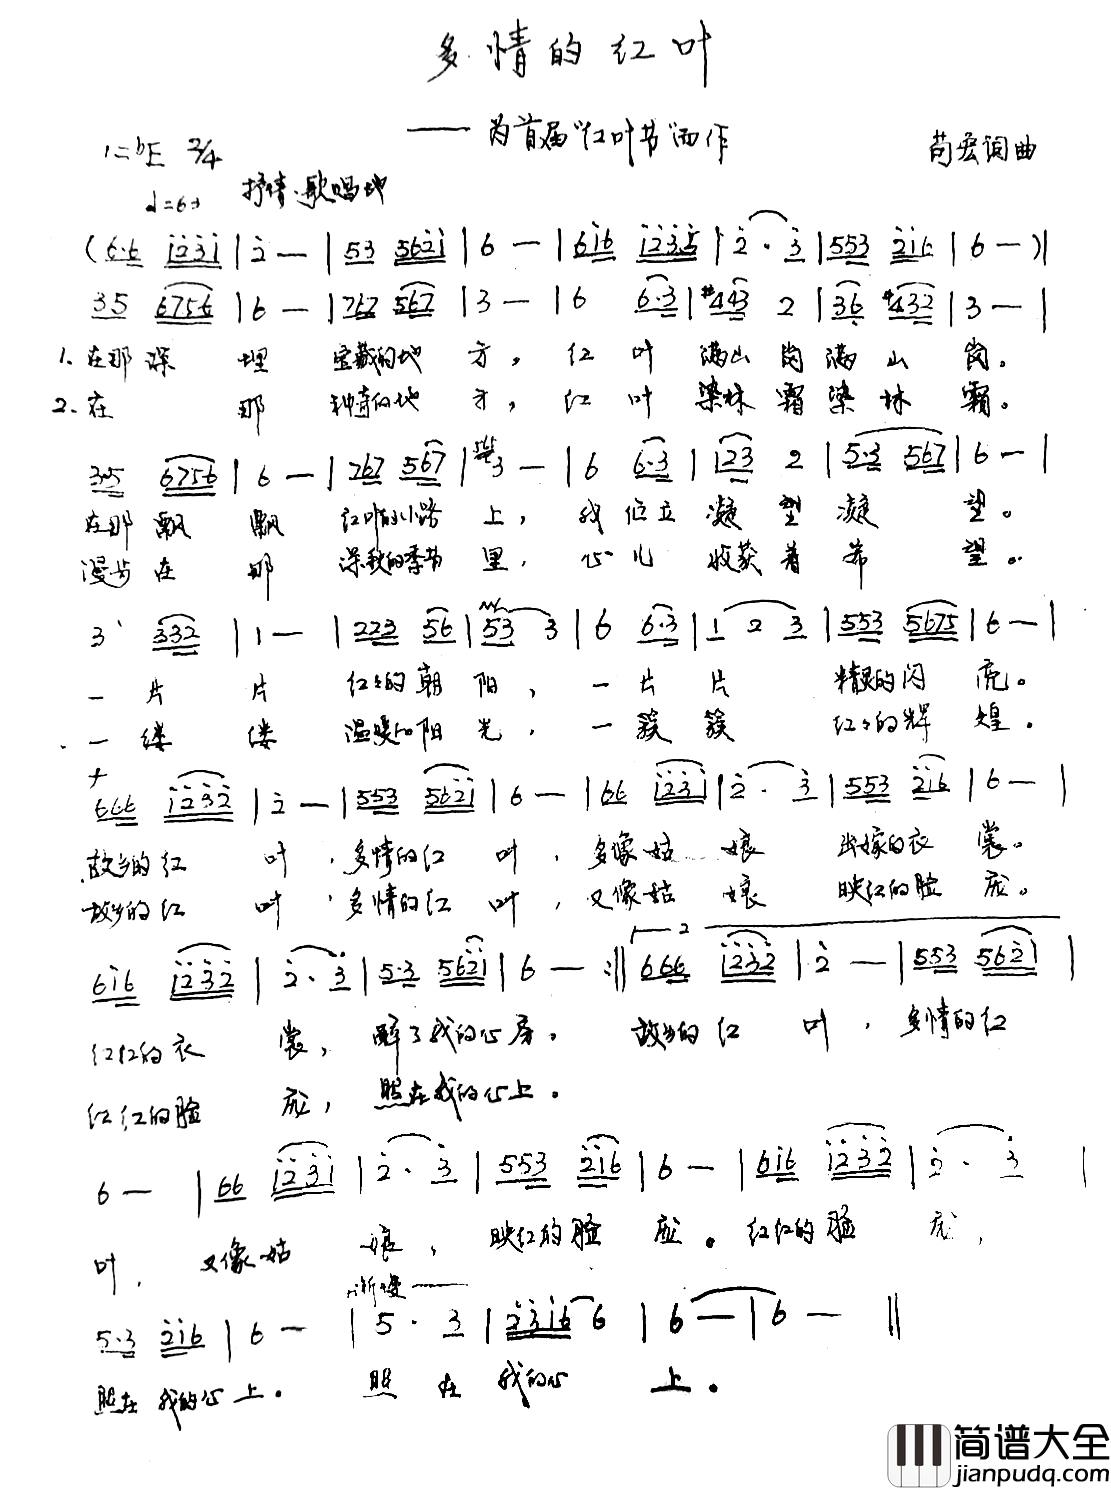 多情的红叶
——为首届“红叶节”而作
1=bE 2/4
苟宏词曲
♩=63 抒情、歌唱地
(6·6 i231 | 2 — | 53 5621 | 6 — | 616 1235 | 2 · 3 | 553 216 | 6 — )|
35 6756 | 6 — | 767 567 | 3 — | 6 6·3 | #443 2 | 36 #432 | 3 — |
1. 在那深埋宝藏的地方，红叶满山岗满山岗。
2. 在那种奇的地方，红叶染林霜染林霜。
3·5 6756 | 6 — | 767 567 | 3 — | 6 6·3 | 123 2 | 5·3 567 | 6 — |
在那飘飘红叶的小路上，我伫立凝望凝望。
漫步在那深秋的季节里，心儿收获着希望。
3 332 | 1 — | 223 56 | 53 3 | 6 6·3 | 1 2 3 | 553 5675 | 6 — |
一片片红红的朝阳，一片片精灵的闪亮。
一缕缕温暖的阳光，一簇簇红红的辉煌。
666 1232 | 2 — | 553 5621 | 6 — | 66 1231 | 2 · 3 | 553 216 | 6 — |
故乡的红叶，多情的红叶，多像姑娘出嫁的衣裳。
故乡的红叶，多情的红叶，又像姑娘映红的脸庞。
616 1232 | 2 · 3 | 5·3 5621 | 6 — :‖ 2 666 1232 | 2 — | 553 5621 |
红红的衣裳，醉了我的心房。故乡的红叶，多情的红
红红的脸庞，照在我的心上。
6 — | 66 1231 | 2 · 3 | 553 216 | 6 — | 616 1232 | 2 · 3 |
叶，又像姑娘，映红的脸庞。红红的脸庞，
渐慢——
5·3 216 | 6 — | 5 · 3 | 2316 6 | 6 — | 6 — ‖
照在我的心上。照在我的心上。
简谱大全
jianpudq.com